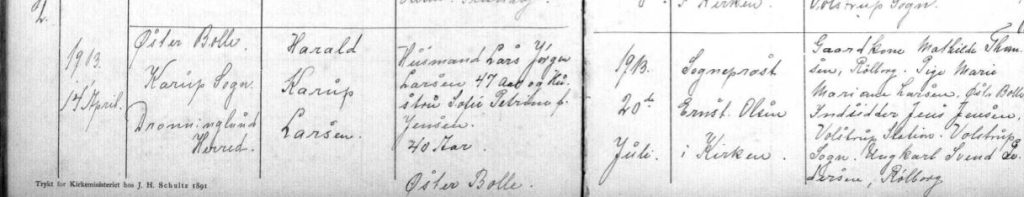 2.
1913
14 April.
Øster Bolle.
Karup Sogn
Dronninglund
Herred.
Harald
Karup
Larsen.
Husmand Lars Jørgen
Larsen 47 Aar og Hu-
stru Sofie Petrine f.
Jensen.
40 Aar.
Øster Bolle.
1913.
20de
Juli.
i Kirken
Sogneprost
Ernst Olsen
i Kirken.
Volstrup Sogn.
Gaardkone Mathilde Thom-
sen, Rölborg. Pige Marie
Mariane Larsen. Øster Bolle
Indsidder Jens Jensen,
Volstrup Station. Volstrup
Sogn. Ungkarl Svend Pe-
dersen, Rölborg
Trykt for Kirkeministeriet hos J. H. Schultz 1891